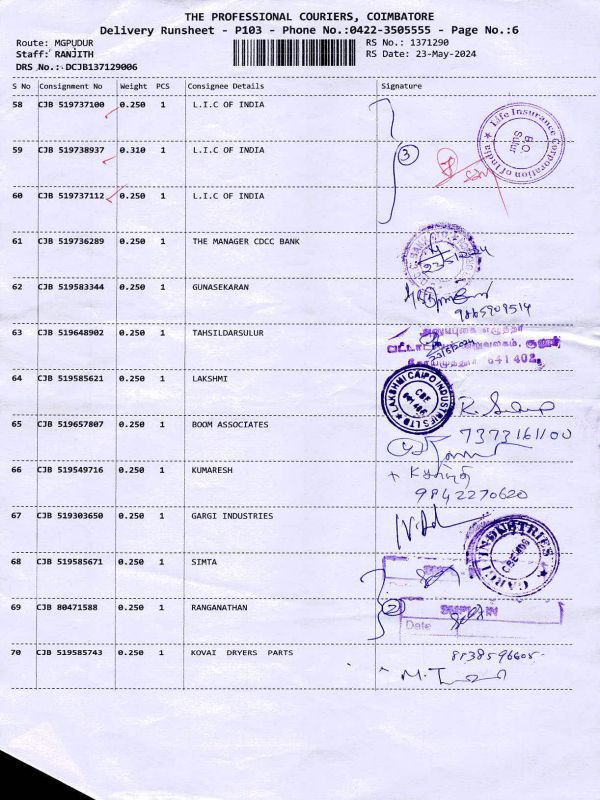 THE PROFESSIONAL COURIERS, COIMBATORE
Delivery Runsheet - P103 - Phone No.:0422-3505555 - Page No.:6
Route: MGPUDUR RS No.: 1371290
Staff: RANJITH RS Date: 23-May-2024
DRS No.: DCJB137129006
S No Consignment No Weight PCS Consignee Details Signature
58 CJB 519737100 0.250 1 L.I.C OF INDIA
Life Insurance Corporation of India
B.O. Sulur
59 CJB 519738937 0.310 1 L.I.C OF INDIA 3
60 CJB 519737112 0.250 1 L.I.C OF INDIA
61 CJB 519736289 0.250 1 THE MANAGER CDCC BANK
62 CJB 519583344 0.250 1 GUNASEKARAN
9865909514
63 CJB 519648902 0.250 1 TAHSILDARSULUR
23/5/2024
641 402
64 CJB 519585621 0.250 1 LAKSHMI
LAKSHMI CAIPO INDUSTRIES LTD
65 CJB 519657807 0.250 1 BOOM ASSOCIATES
7373161100
66 CJB 519549716 0.250 1 KUMARESH
9842270620
67 CJB 519303650 0.250 1 GARGI INDUSTRIES
GARGI INDUSTRIES
68 CJB 519585671 0.250 1 SIMTA
69 CJB 80471588 0.250 1 RANGANATHAN 2
Date
70 CJB 519585743 0.250 1 KOVAI DRYERS PARTS
8838596605